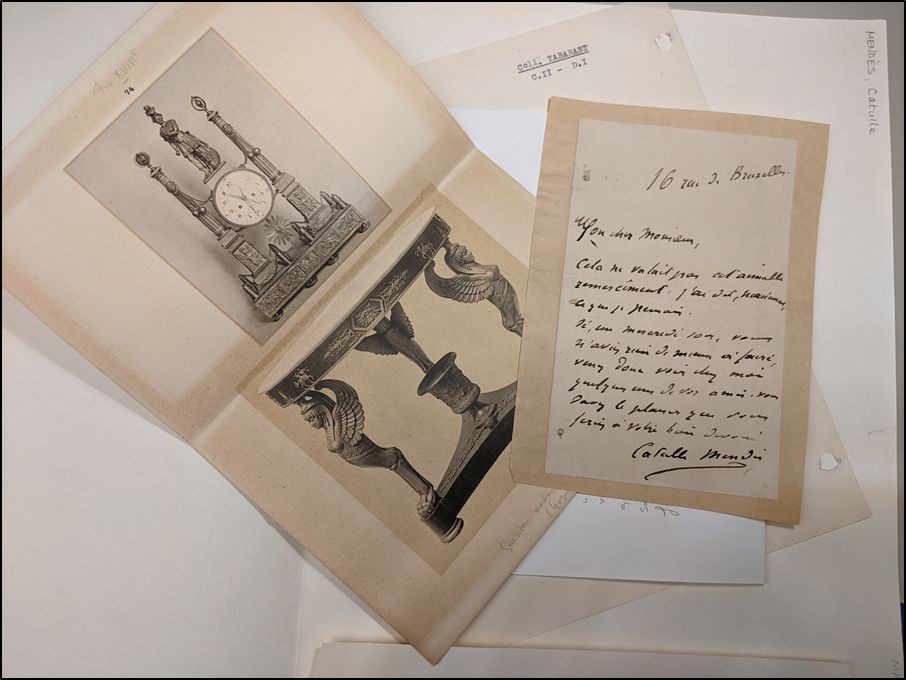 Fin XVIIIe
74
Coll. TABARANT
C.II - D.I
MENDÈS, Catulle
16 rue de Bruxelles.
Mon cher Monsieur,
Cela ne valait pas cet aimable
remerciment. j'ai dit,
ce que je pensais.
Si, un mercredi soir, vous
n'aviez rien de mieux à faire,
venez donc voir chez moi
quelques uns de vos amis. vous
savez le plaisir que vous
feriez à votre bien dévoué
Catulle Mendès
Guéridon